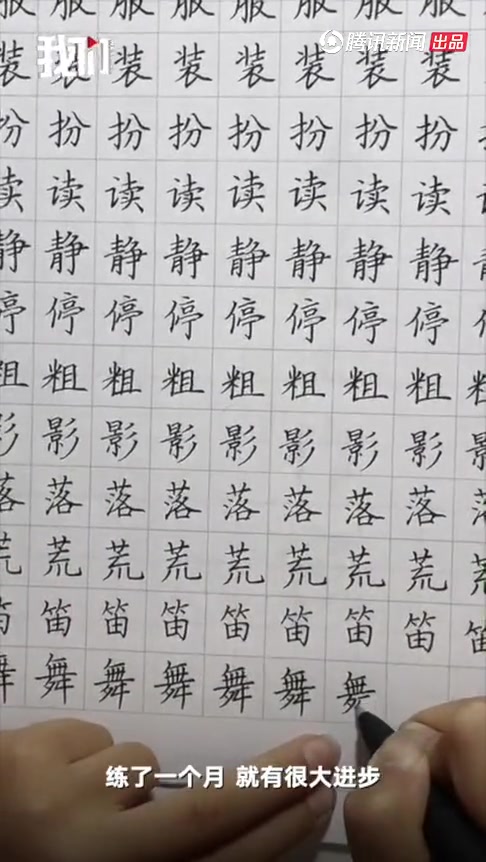 腾讯新闻 出品
我们
服服服服服服服服
装装装装装装装装
扮扮扮扮扮扮扮扮
读读读读读读读读
静静静静静静静静
停停停停停停停停
粗粗粗粗粗粗粗粗
影影影影影影影影
落落落落落落落落
荒荒荒荒荒荒荒荒荒
笛笛笛笛笛笛笛笛笛
舞舞舞舞舞舞舞
练了一个月 就有很大进步